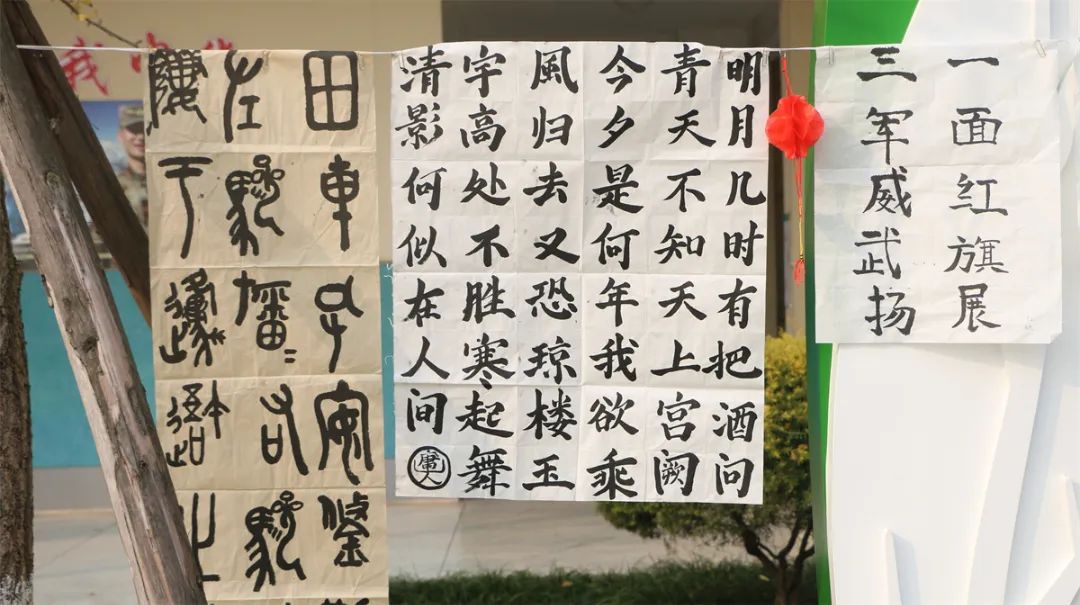 一面红旗展
三军威武扬
明月几时有把酒问
青天不知天上宫阙
今夕是何年我欲乘
風归去又恐琼楼玉
宇高处不胜寒起舞
清影何似在人间
田車孔安鋚
左驂旛＝右驂
隮于邍
我